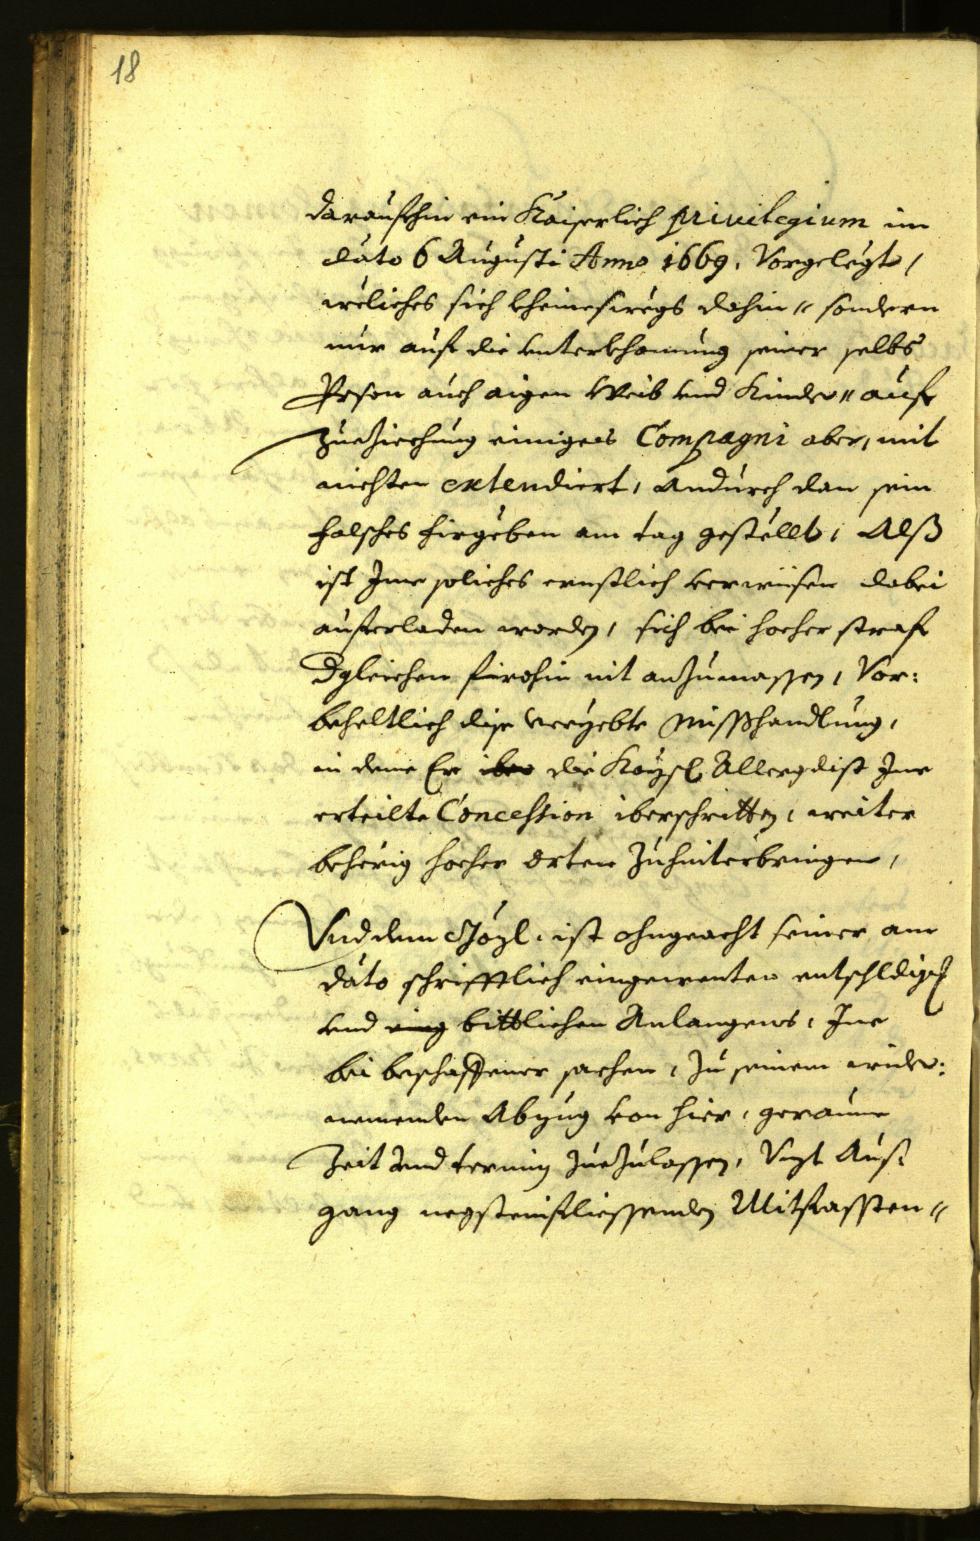 18
daraufhin ein Kaiserlich privilegium im
dato 6 Augusti Anno 1669, Vorgelegt,
weliches sich kheineswegs dahin" sondern
nur auf die unterkhomung seiner selbs
Person auch aigen Weib und Kinder" auf
zueziechung einiges Compagni aber, mit
nichten extendiert, Andurch dan sein
falsches firgeben am tag gestellt, Alß
ist Ime soliches ernstlich verwisen dabei
auferladen worden, sich bei hocher straf
dgleichen firohin nit anzumassen, Vor:
beheltlich dise veryebte Missßhandlung,
in deme Er iber die Kaysl Allergdist Ime
erteilte Concession iberschritten, weiter
behörig hocher orten zuhinterbringen,
Und dem Jözl, ist ohngeacht seiner am
dato schrifftlich eingewenten entschldig
und bittlichen Anlangens, Ime
bei beschaffener sachen, zu seinem
nemenden Abzug von hier, geraume
Zeit und termin zuezulassen, Aus:
gang negsteinfliessenden Mitfassten"